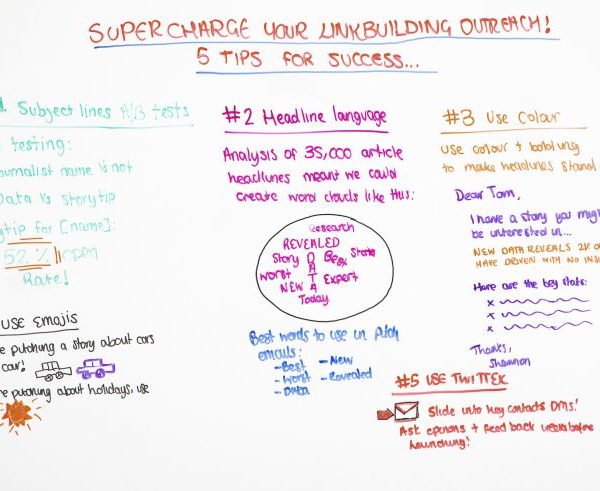 SUPERCHARGE YOUR LINKBUILDING OUTREACH!
5 TIPS FOR SUCCESS...
1. Subject lines A/B tests
testing:
ournalist name vs not
Data vs storytip
ytip for [name]:
52% open
Rate!
USE EMOJIS
e pitching a story about cars
car!
e pitching about holidays, use
#2 Headline language
Analysis of 35,000 article
headlines meant we could
create word clouds like this:
Research
REVEALED
Story
DATA
Best
State
Worst
Expert
NEW
Today
Best words to use in pitch
emails:
- Best
- Worst
- Data
- New
- Revealed
#3 Use Colour
use colour + bolding
to make headlines stand
Dear Tom,
I have a story you may
be interested in...
NEW DATA REVEALS 2K
HAVE DRIVEN WITH NO INS
Here are the key stats:
x
x
x
Thanks,
Shannon
#5 USE TWITTER
Slide into key contacts DMs!
Ask opinions + feed back weeks before
launching!